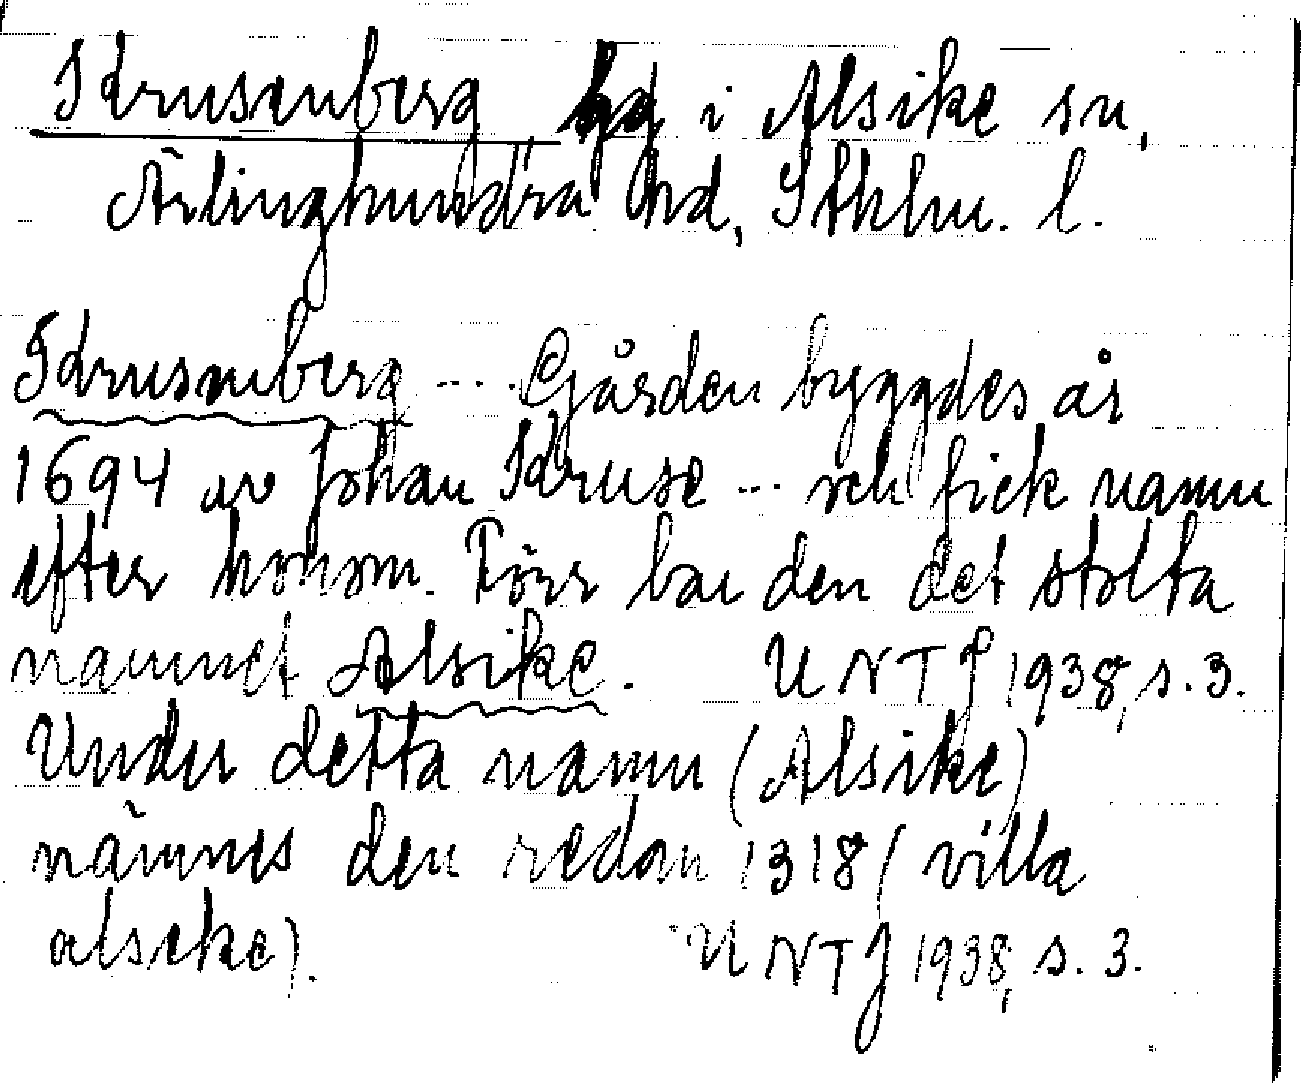 Krusenberg hg i Alsike sn,
Ärlinghundra hd, Sthlm. l.
Krusenberg .... Gården byggdes år
1694 av Johan Kruse ... och fick namn
efter honom. Förr bar den det stolta
namnet Alsike. UNTJ 1938, s. 3.
Under detta namn (Alsike)
nämnes den redan 1318 (villa
alseke). UNTJ 1938, s. 3.